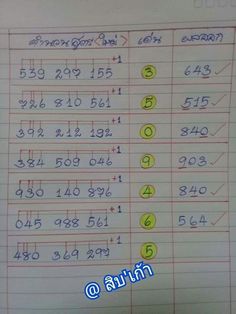 คำนวนสูตร <ใหม่> เด่น ผลออก
+1
539 297 155 3 643 ✓
+1
726 810 561 5 515 ✓
+1
392 212 192 0 840 ✓
+1
384 509 046 9 903 ✓
+1
930 140 876 4 840 ✓
+1
045 988 561 6 564 ✓
+1
480 369 297 5
@ สิบ'เก้า